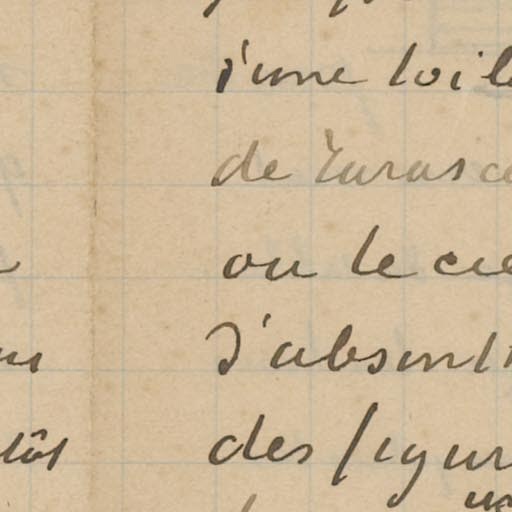 d'une toile
de Tarasc
ou le cie
d'absinth
des figur
tôt